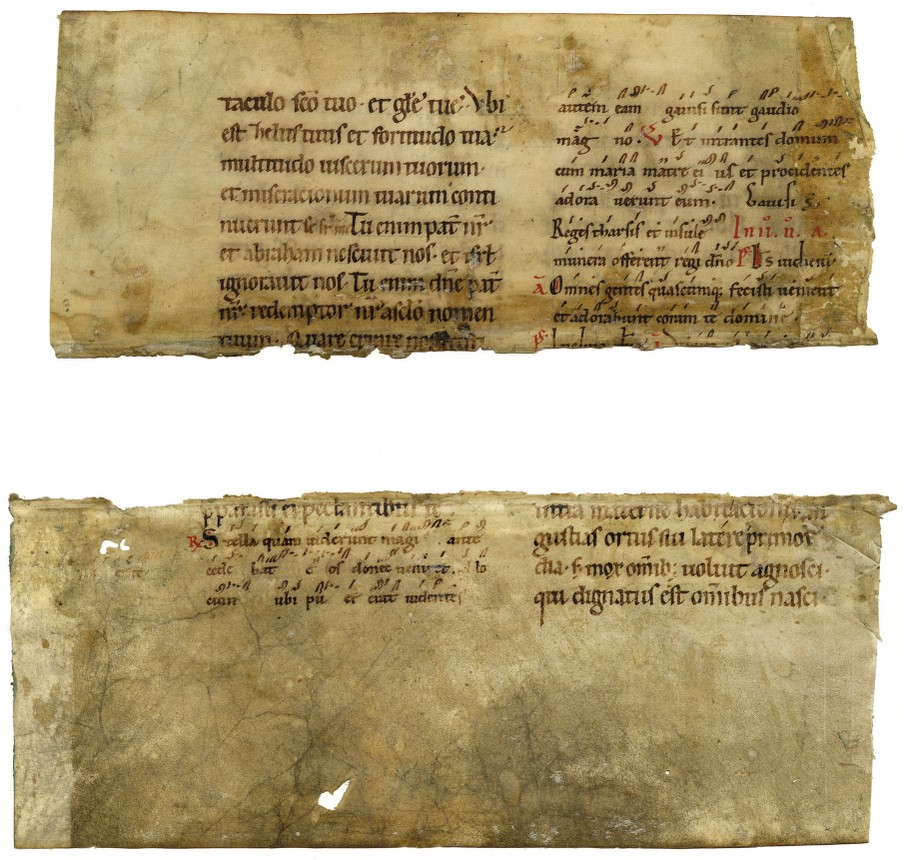 taculo sc̄o tuo · et gl̄e tue · Vbi
est zelus tuus et fortitudo tua
multitudo uiscerum tuorum ·
et miseracionum tuarum conti
nuerunt se Tu enim pat̄ nr̄
et abraham nesciuit nos · et isrl̄
ignorauit nos · Tu enim dn̄e pat̄
nr̄ redemptor nr̄ a sclō nomen
tuum · Quare errare
autem eam gauisi sunt gaudio
mag no · V Et intrantes domum
cum maria matre ei us et procidentes
adora uerunt eum · Gauisi s̄ ·
Reges tharsis et insule In
munera offerent regi dn̄o Ps
A Omnes gentes quascumq; fecisti uenient
et adorabunt coram te domine ·
expectantibus te
R Stella quam uiderunt magi ante
cede bat e os donec
eum ubi pu er erat uidentes
intra materne habitacionis an
gustias ortus sui latere primor
dia · s · mox omib; uoluit agnosci ·
qui dignatus est omnibus nasci ·